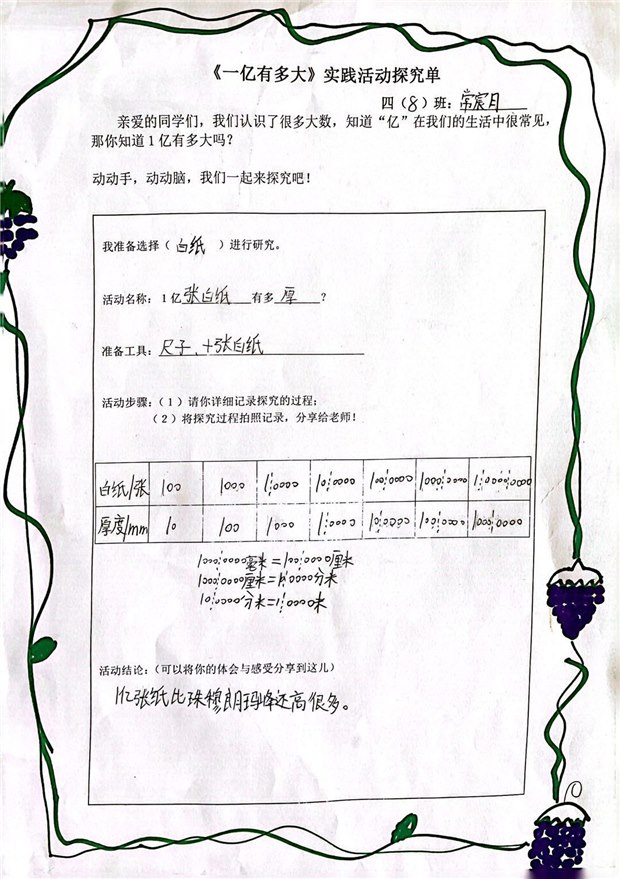 《一亿有多大》实践活动探究单
四（8）班：常宸月
亲爱的同学们，我们认识了很多大数，知道“亿”在我们的生活中很常见，
那你知道1亿有多大吗？
动动手，动动脑，我们一起来探究吧！
我准备选择（ 白纸 ）进行研究。
活动名称：1亿张白纸有多厚？
准备工具：尺子、十张白纸
活动步骤：（1）请你详细记录探究的过程；
（2）将探究过程拍照记录，分享给老师！
白纸/张 100 1000 1¦0000 10¦0000 100¦0000 1000¦0000 1¦0000¦0000
厚度/mm 10 100 1000 1¦0000 10¦0000 100¦0000 1000¦0000
1000¦0000毫米=100¦0000厘米
100¦0000厘米=10¦0000分米
10¦0000分米=1¦0000米
活动结论：（可以将你的体会与感受分享到这儿）
1亿张纸比珠穆朗玛峰还高很多。